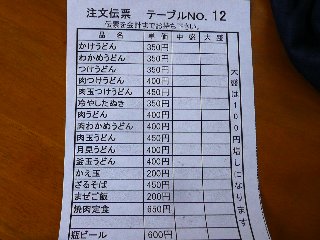 注文伝票 テーブルNO. 12
伝票を会計までお持ち下さい
品 名 単 価 中 盛 大 盛
かけうどん 350円
わかめうどん 350円
つけうどん 350円
肉つけうどん 400円
肉玉つけうどん 450円
冷やしたぬき 350円
肉うどん 400円
肉わかめうどん 400円
肉玉うどん 450円
月見うどん 400円
釜玉うどん 400円
かえ玉 200円
ざるそば 450円
まぜご飯 200円
焼肉定食 650円
瓶ビール 600円
大盛は100円増しになります